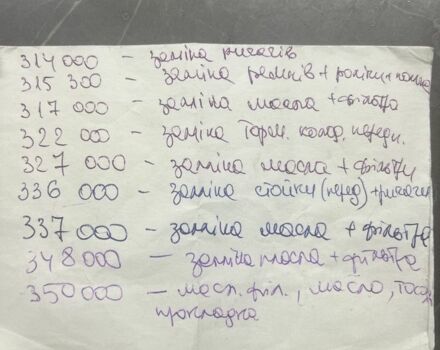 314 000 – заміна ричагів
315 300 – заміна ременів + ролики + помпа
317 000 – заміна масла + фільтра
322 000 – заміна торм. колод. передн.
327 000 – заміна масла + фільтри
336 000 – заміна стойки (перед) + ричаги
337 000 – заміна масла + фільтра
348 000 – заміна масла + фільтра
350 000 – масл. філ., масло, тосол
прокладка